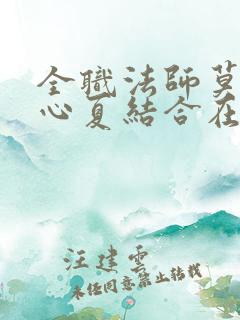 全職法師莫
心夏結合在
汪建雲
未经同意禁止转载